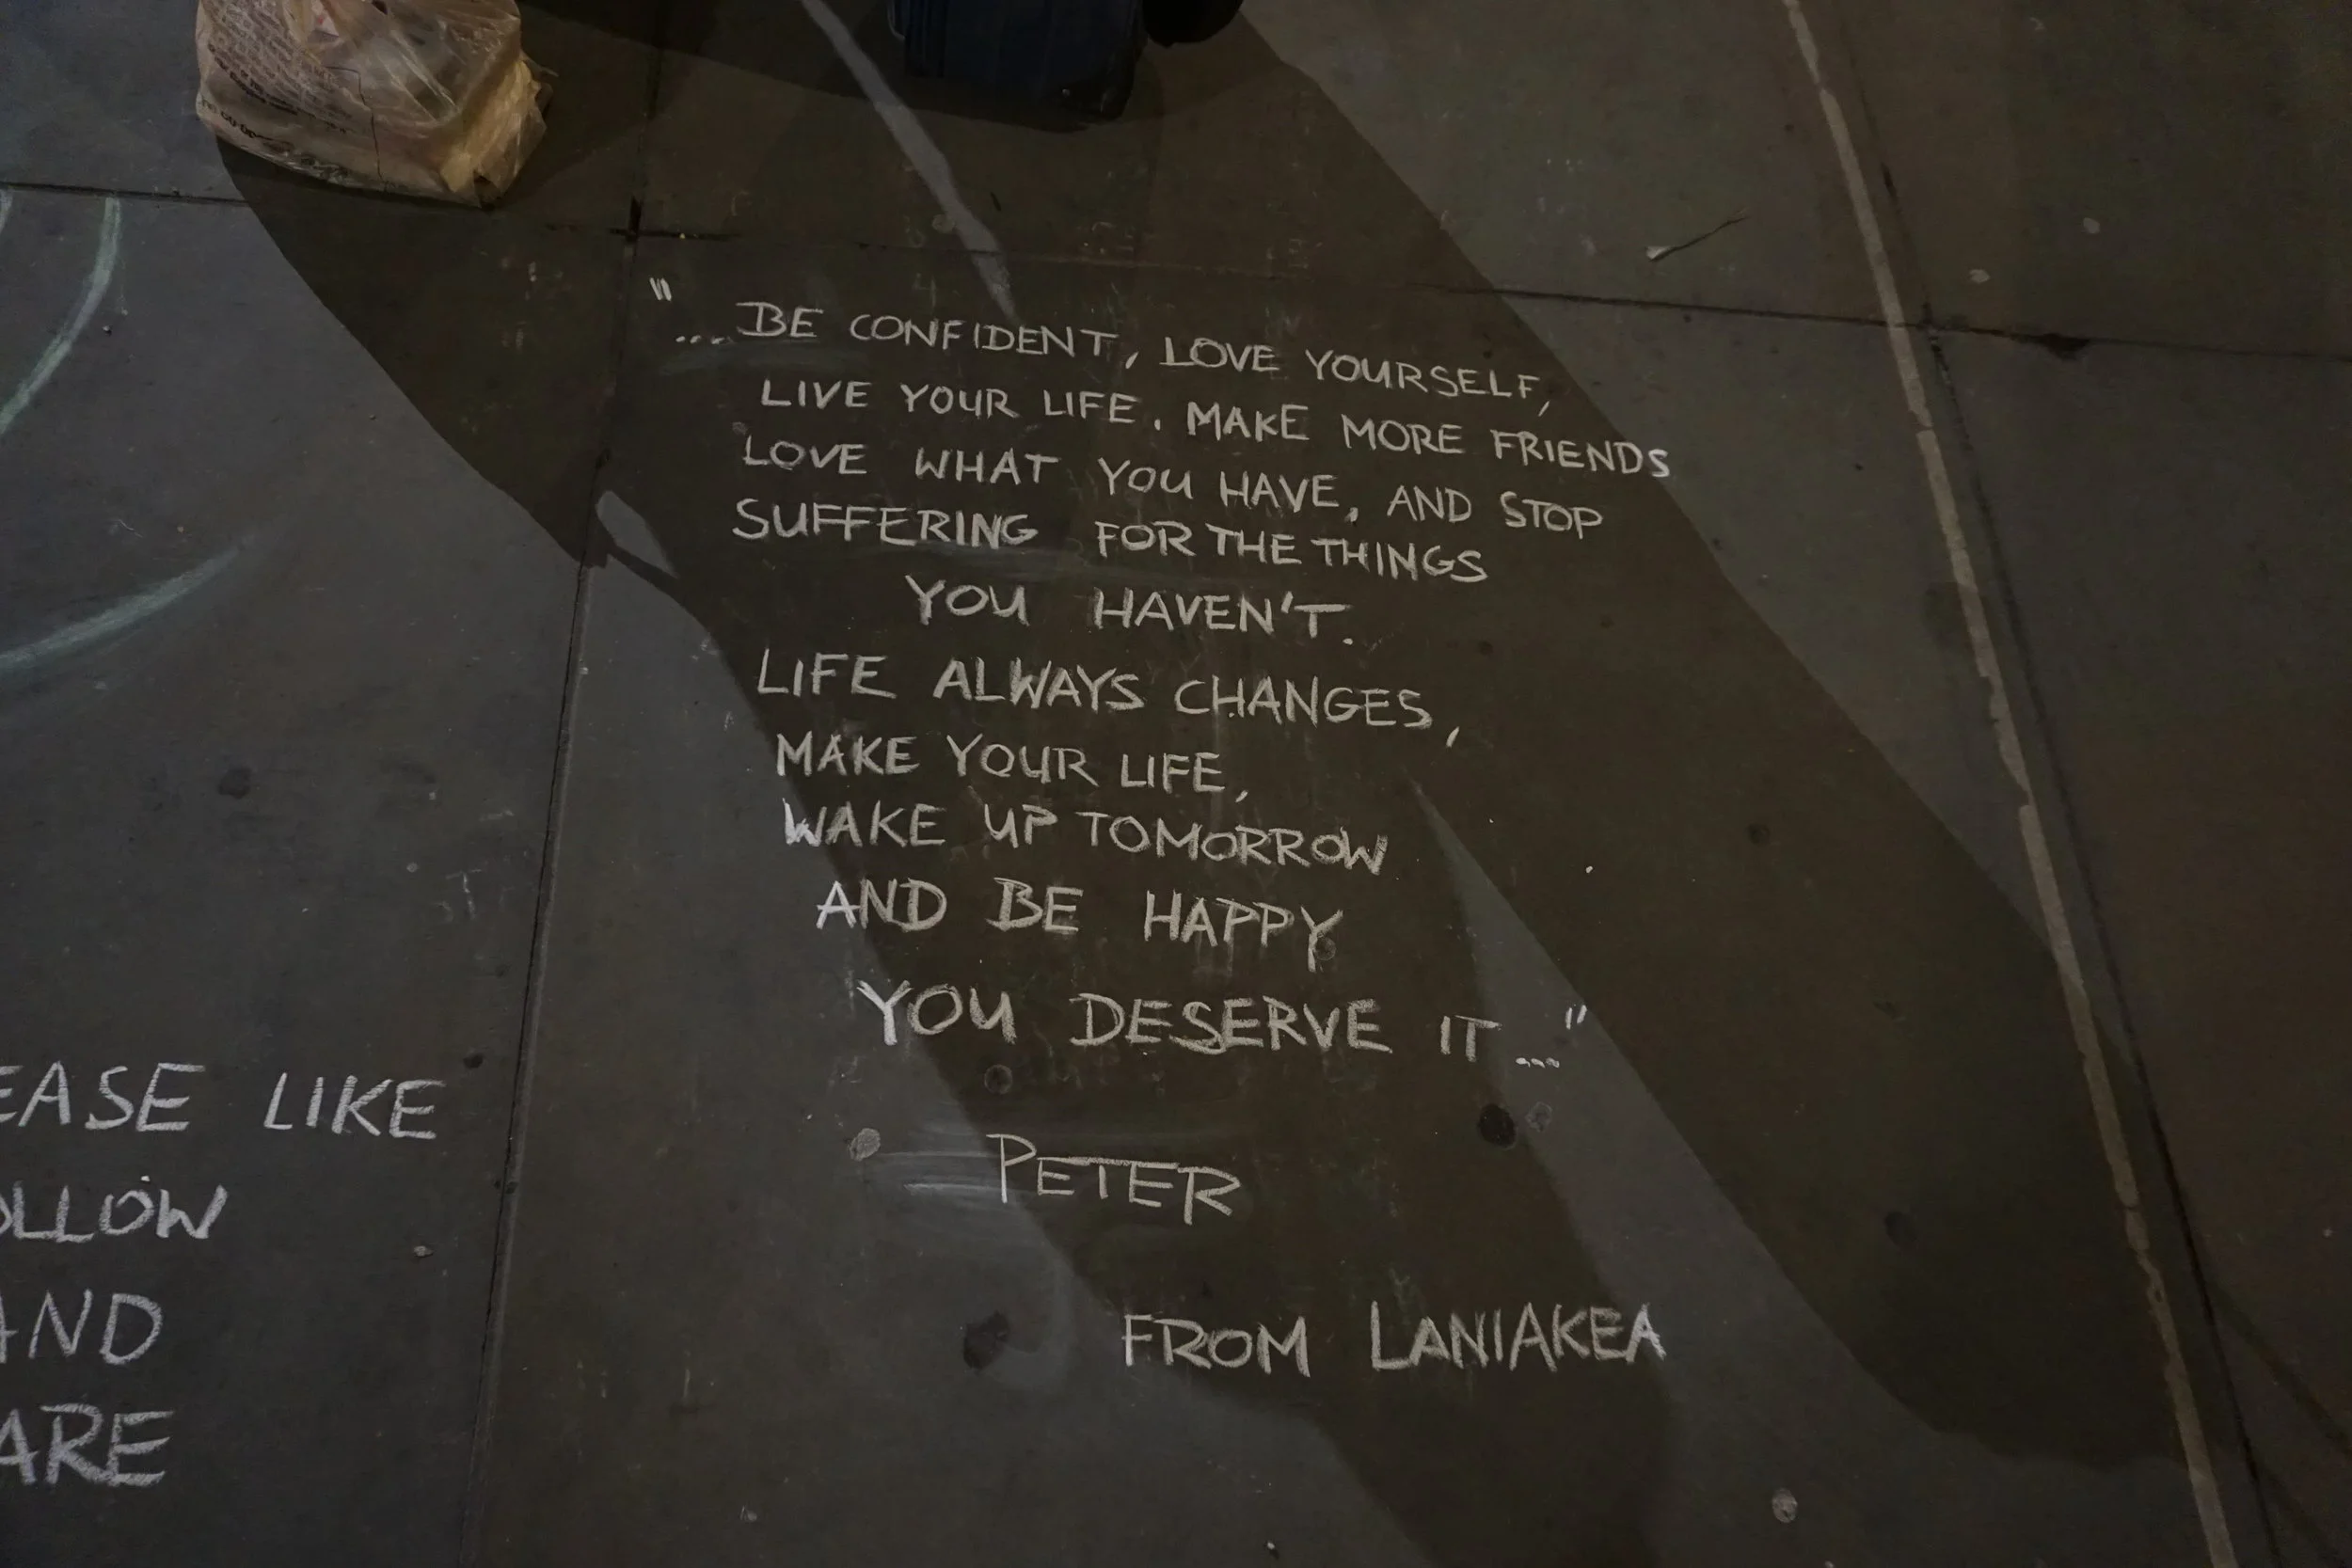 "...BE CONFIDENT, LOVE YOURSELF,
LIVE YOUR LIFE. MAKE MORE FRIENDS
LOVE WHAT YOU HAVE, AND STOP
SUFFERING FOR THE THINGS
YOU HAVEN'T.
LIFE ALWAYS CHANGES,
MAKE YOUR LIFE,
WAKE UP TOMORROW
AND BE HAPPY
YOU DESERVE IT..."
PETER
FROM LANIAKEA
EASE LIKE
OLLOW
AND
ARE